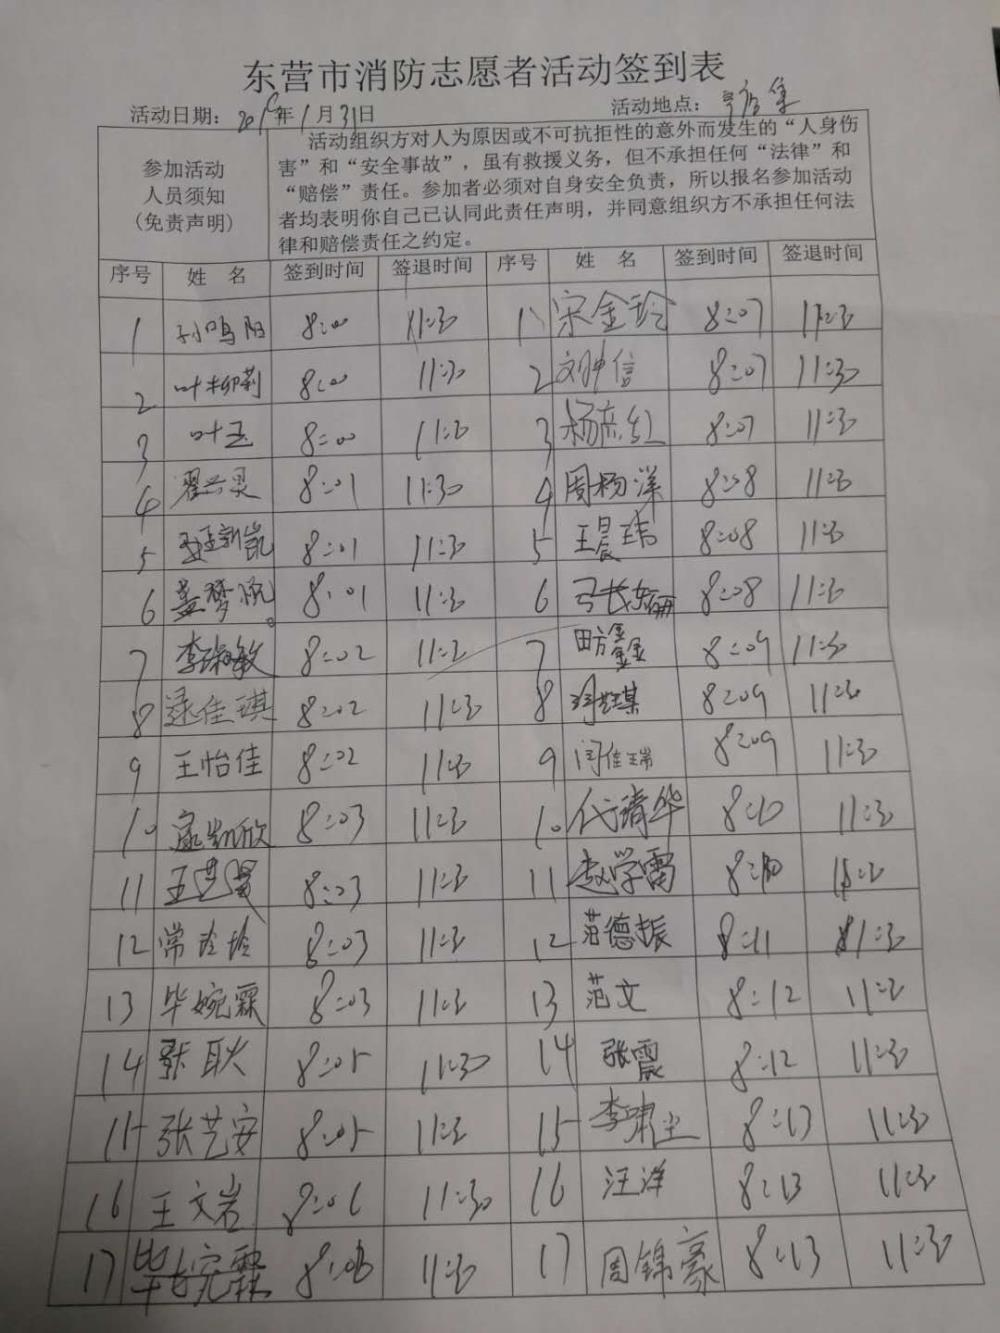 东营市消防志愿者活动签到表
活动日期： 年1月31日 活动地点：
参加活动
人员须知
（免责声明）
活动组织方对人为原因或不可抗拒性的意外而发生的“人身伤
害”和“安全事故”，虽有救援义务，但不承担任何“法律”和
“赔偿”责任。参加者必须对自身安全负责，所以报名参加活动
者均表明你自己已认同此责任声明，并同意组织方不承担任何法
律和赔偿责任之约定。
序号 姓 名 签到时间 签退时间 序号 姓 名 签到时间 签退时间
1 孙鸣阳 8:00 11:30 1 宋金玲 8:07 11:30
2 叶柳莉 8:00 11:30 2 刘钟信 8:07 11:30
3 叶玉 8:00 11:30 3 杨 红 8:07 11:30
4 翟兴灵 8:01 11:30 4 周杨洋 8:08 11:30
5 凯 8:01 11:30 5 王晨玮 8:08 11:30
6 姜梦帆 8:01 11:30 6 张娜 8:08 11:30
7 李淑敏 8:02 11:30 7 田方鑫 8:09 11:30
8 佳琪 8:02 11:30 8 8:09 11:30
9 王怡佳 8:02 11:30 9 闫佳瑞 8:09 11:30
10 寇凯欣 8:03 11:30 10 代靖华 8:10 11:30
11 王艺 8:03 11:30 11 赵学雷 8:10 11:30
12 常玲玲 8:03 11:30 12 范德振 8:11 11:30
13 毕婉霖 8:03 11:30 13 范文 8:12 11:30
14 张耿 8:05 11:30 14 张震 8:12 11:30
15 张艺安 8:05 11:30 15 李啸尘 8:13 11:30
16 王文岩 8:06 11:30 16 汪洋 8:13 11:30
17 毕婉霖 8:06 11:30 17 周锦豪 8:13 11:30